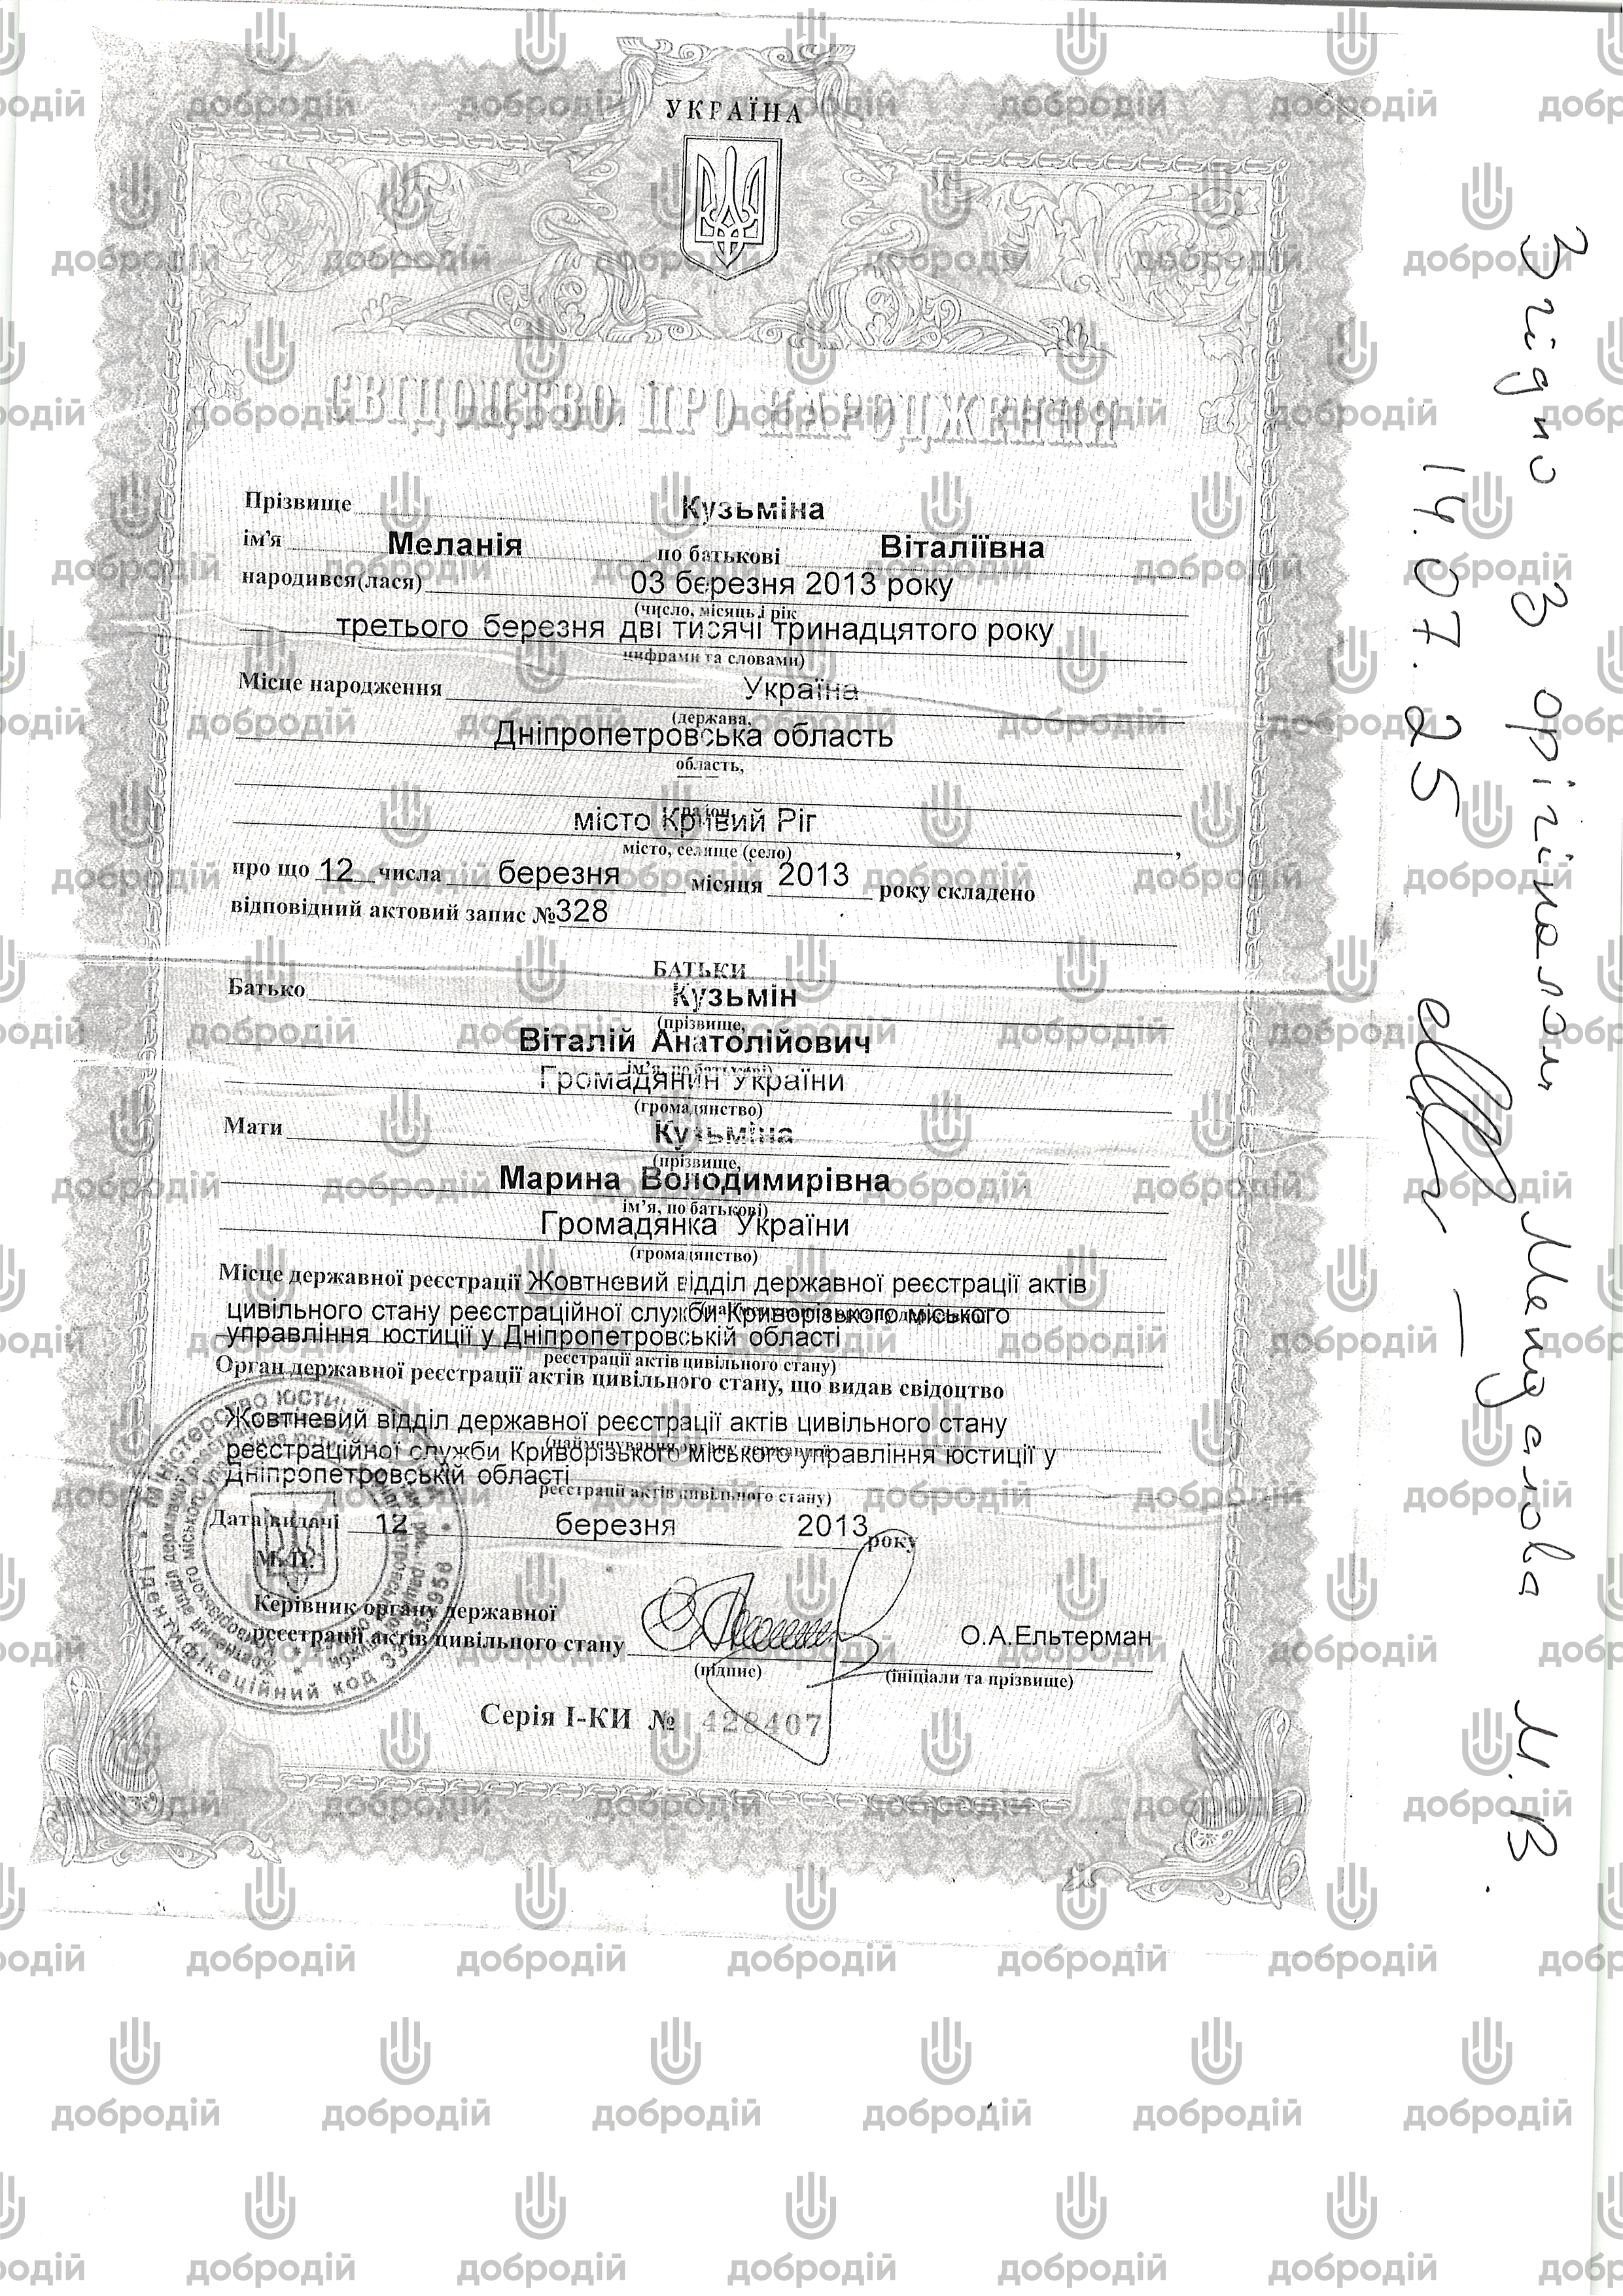 УКРАЇНА
СВІДОЦТВО ПРО НАРОДЖЕННЯ
Прізвище Кузьміна
ім'я Меланія по батькові Віталіївна
народився(лася) 03 березня 2013 року
(число, місяць і рік
третього березня дві тисячі тринадцятого року
цифрами та словами)
Місце народження Україна
(держава,
Дніпропетровська область
область,
район
місто Кривий Ріг ,
місто, селище (село)
про що 12 числа березня місяця 2013 року складено
відповідний актовий запис №328
БАТЬКИ
Батько Кузьмін
(прізвище,
Віталій Анатолійович
ім'я, по батькові)
Громадянин України
(громадянство)
Мати Кузьміна
(прізвище,
Марина Володимирівна
ім'я, по батькові)
Громадянка України
(громадянство)
Місце державної реєстрації Жовтневий відділ державної реєстрації актів
цивільного стану реєстраційної служби Криворізького міського
управління юстиції у Дніпропетровській області
реєстрації актів цивільного стану)
Орган державної реєстрації актів цивільного стану, що видав свідоцтво
Жовтневий відділ державної реєстрації актів цивільного стану
реєстраційної служби Криворізького міського управління юстиції у
Дніпропетровській області
реєстрації актів цивільного стану)
Дата видачі 12 березня 2013 року
М.П.
Керівник органу державної
реєстрації актів цивільного стану О.А.Ельтерман
(підпис) (ініціали та прізвище)
Серія І-КИ № 428407
Згідно з орігіналом
14.07.25
М.В.
добродій